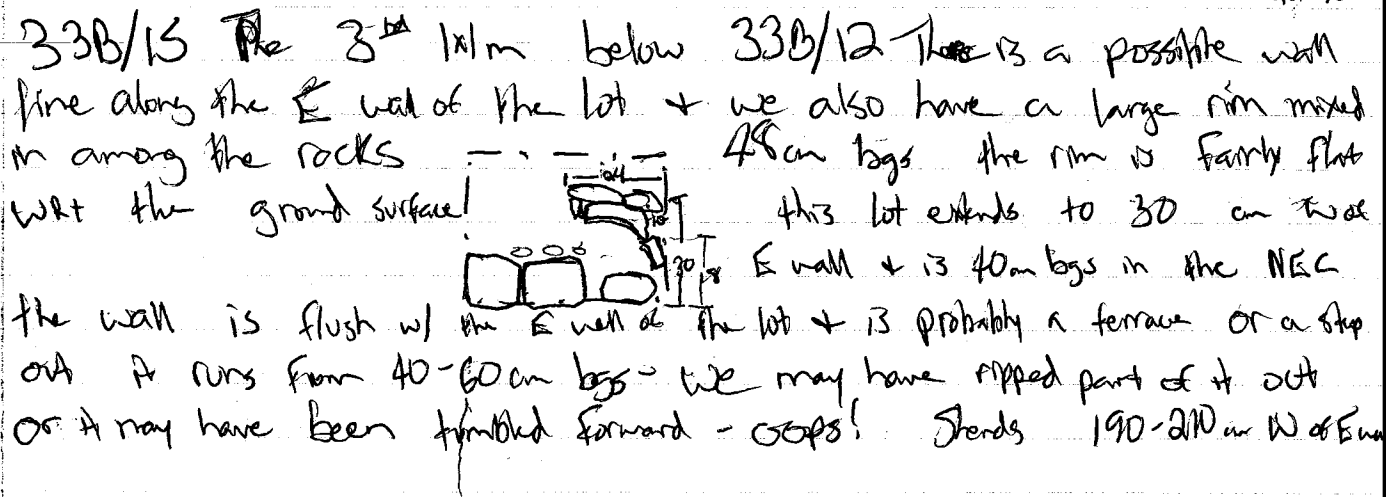 33B/15 The 3rd 1x1m below 33B/12 There is a possible wall
line along the E wall of the lot + we also have a large rim mixed
in among the rocks 48cm bgs the rim is fairly flat
WRt the ground surface! this lot extends to 30 cm W of
30 E wall + is 40cm bgs in the NEC
the wall is flush w/ the E wall of the lot + is probably a terrace or a step
out it runs from 40-60cm bgs - we may have ripped part of it out
or it may have been tumbled forward - oops! Sherds 190-210 cm W of E wa